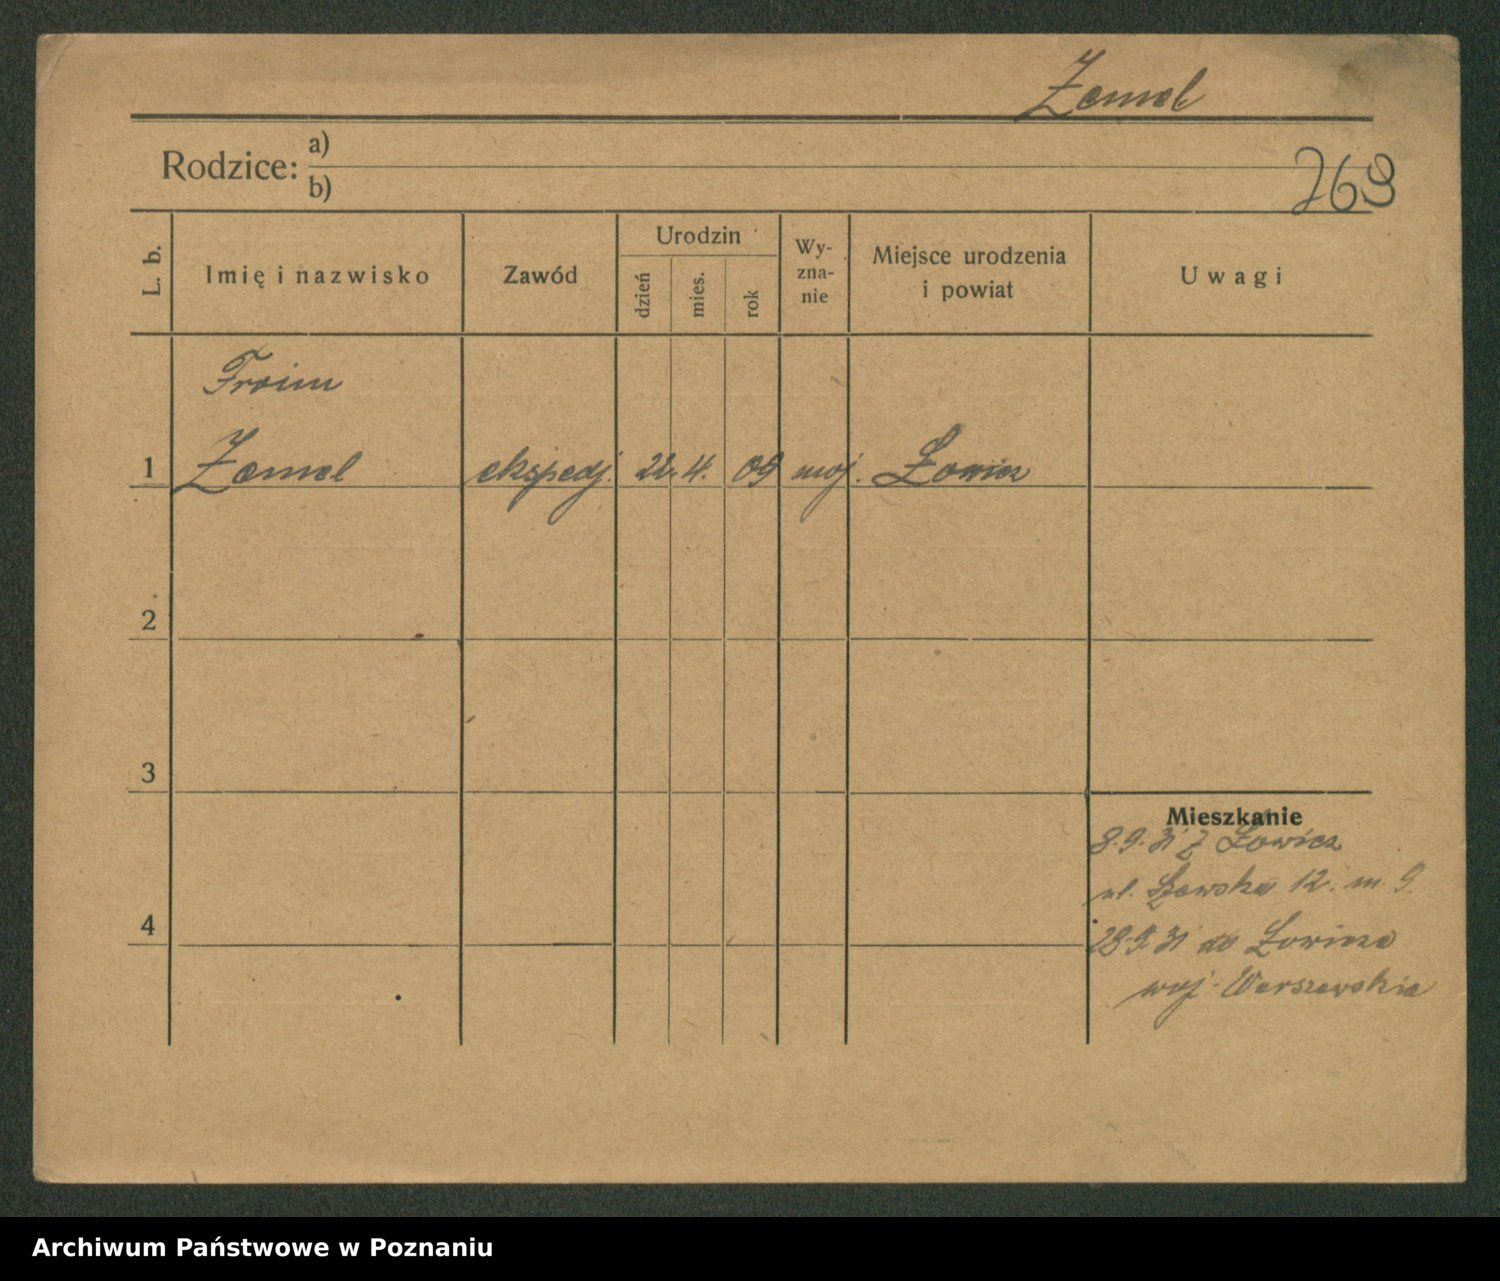 Zemel
Rodzice: a)
b)
769
L. b.
Imię i nazwisko
Zawód
Urodzin
dzień
mies.
rok
Wy-
zna-
nie
Miejsce urodzenia
i powiat
Uwagi
Froim
1 Zemel ekspedj. 22. 4. 09 moj. Łowicz
2
3
Mieszkanie
8.9.31 z Łowicz
ul. 12. m 9.
4
28.9.31 do Łowicza
woj. Warszawskie
Archiwum Państwowe w Poznaniu